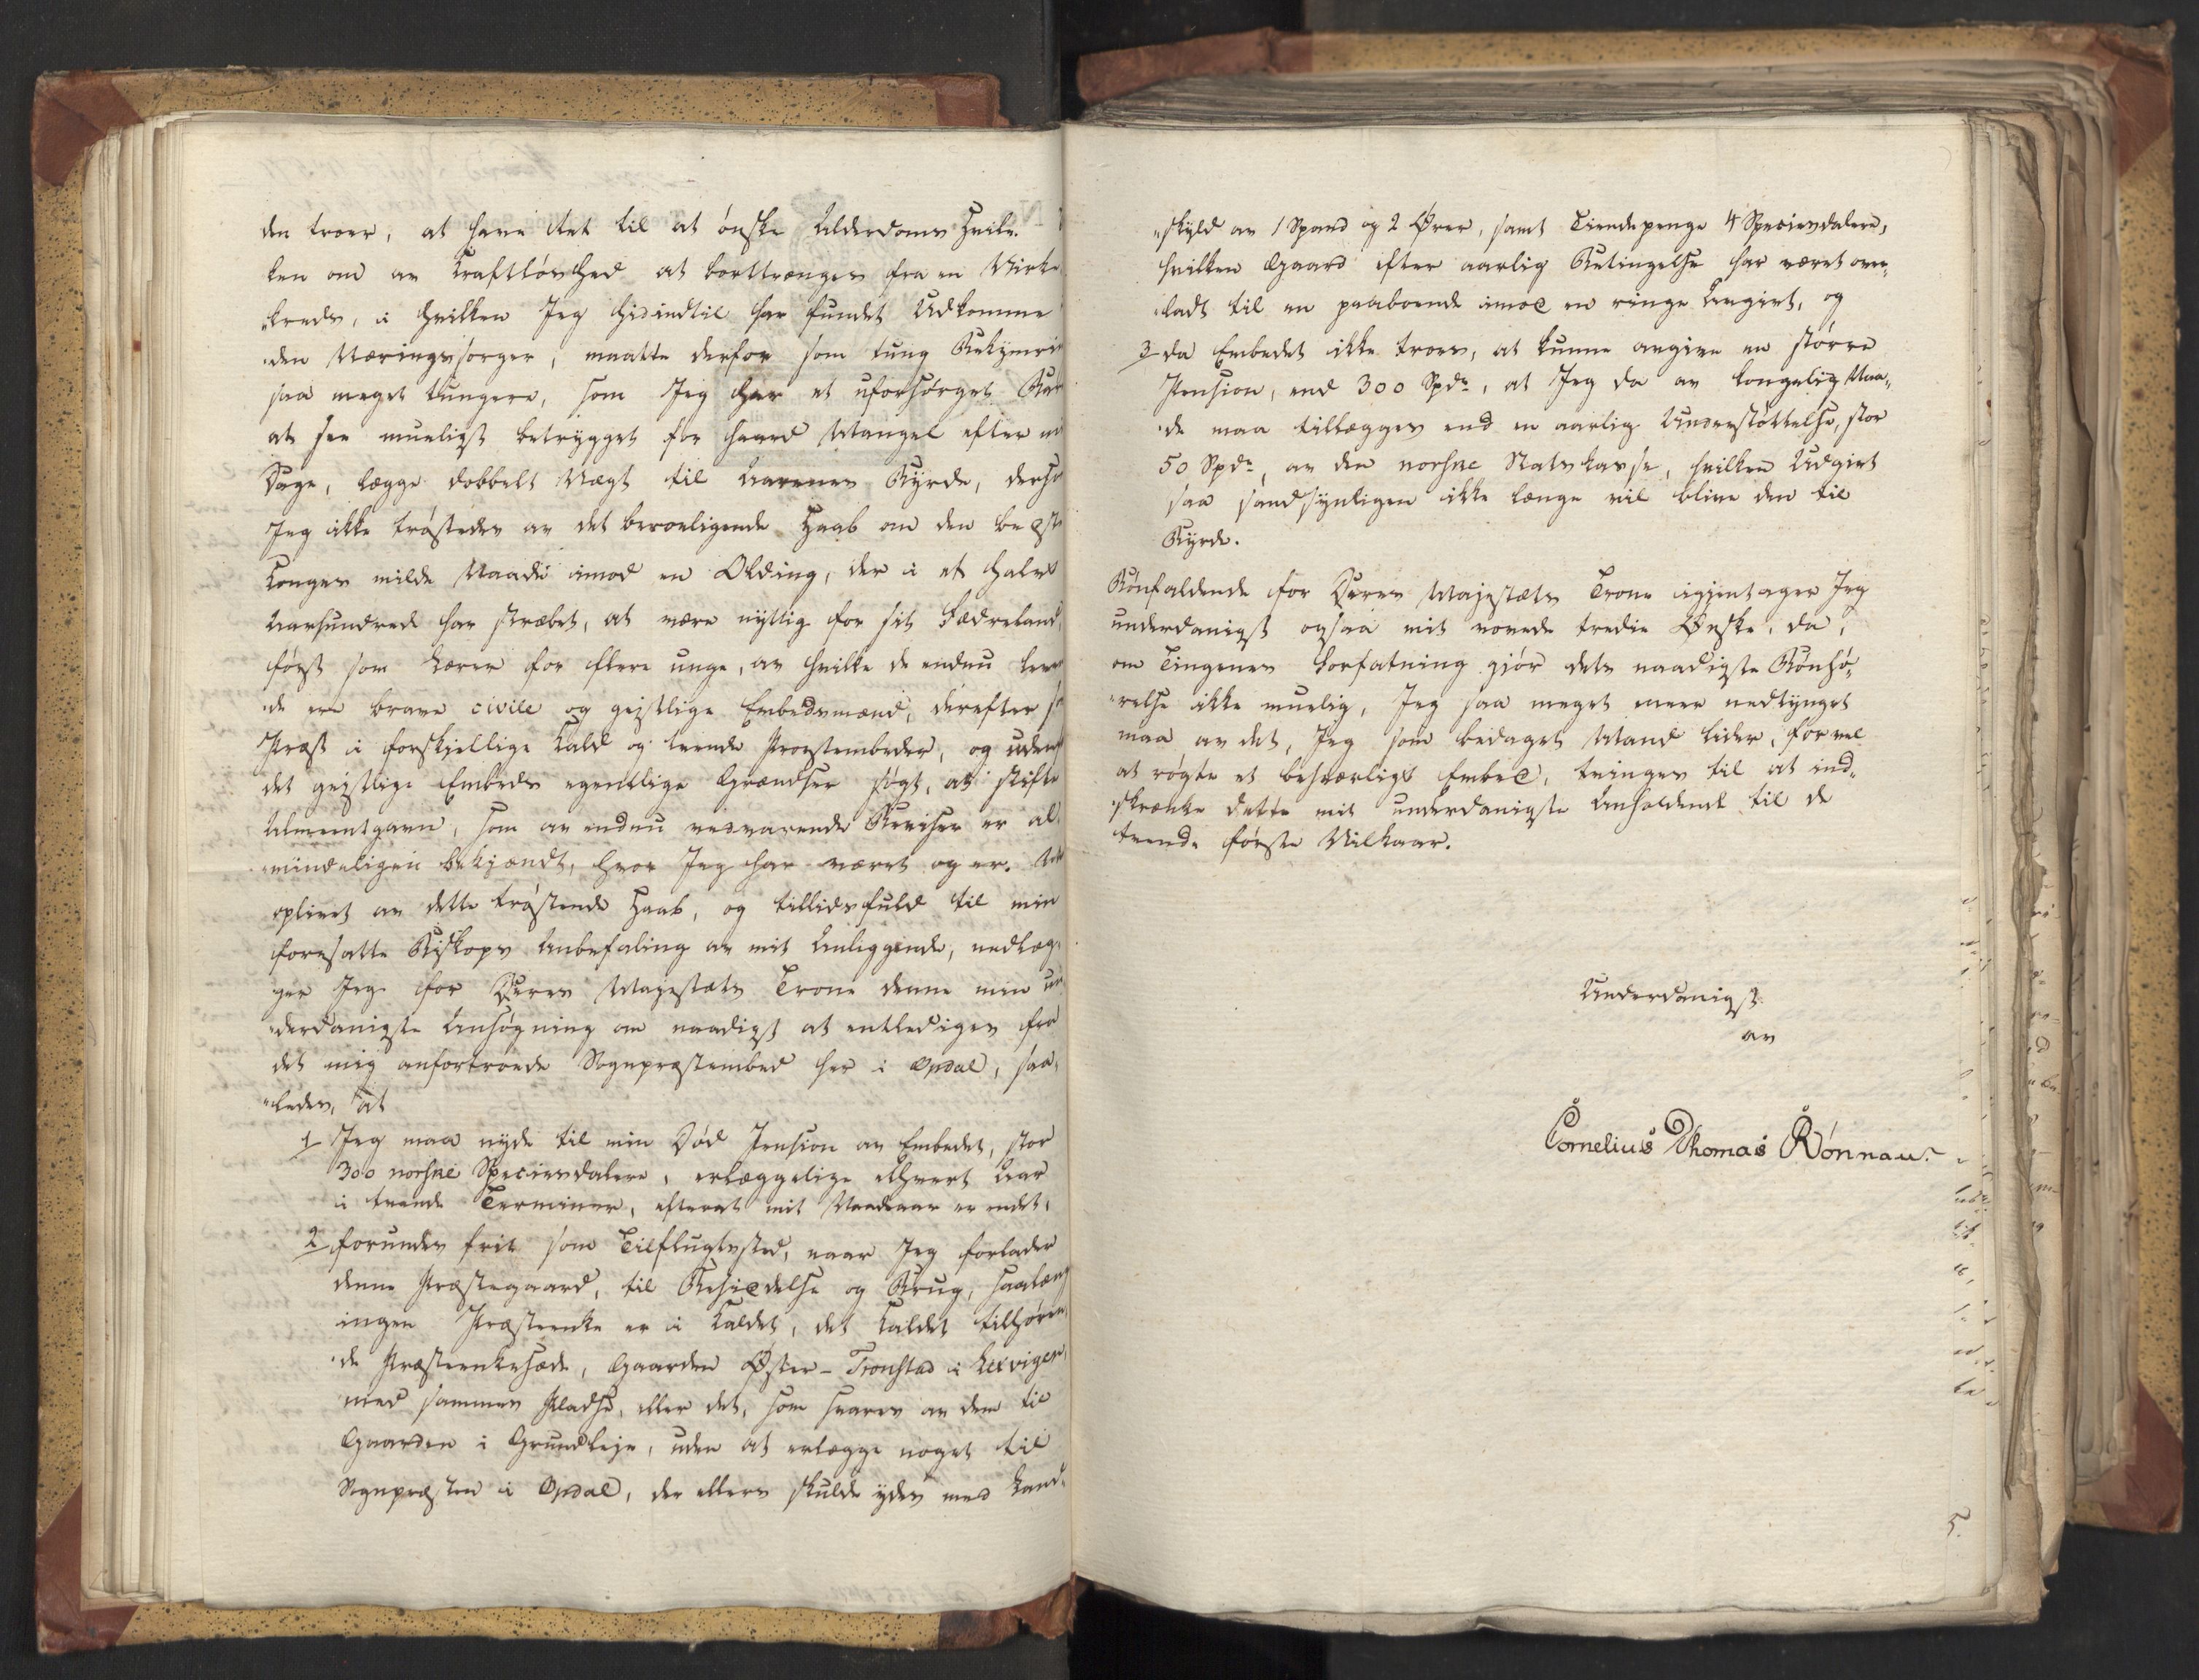 den troer, at have Ret til at ønske Alderdoms Hvile.
ken om av Kraftløshed at borttrænges fra en Virke
kreds, i hvilken Jeg hidindtil har fundet Udkomme
den Næringssorger, maatte derfor som tung Bekymrin
saa meget tungere, som Jeg har et uforsørget Bar
at see mueligst betrygget for haard Mangel efter mi
Dage, lægge dobbelt Vægt til Aarenes Byrde, derso
Jeg ikke trøstedes av det beroeligende Haab om den beste
Konges milde Naade imod en Olding, der i et halvt
Aarhundrede har stræbet, at være nyttig for sit Fædreland,
først som Lærer for flere unge, av hvilke de endnu leve
de ere brave civile og geistlige Embedsmænd, derefter so
Præst i forskjellige Kald og tvende Provstembeder, og udenfo
det geistlige Embeds egentlige Grændser søgt, at stifte
Almeentgavn, som av endnu vedvarende Beviser er al
mindeligen bekjendt, hvor Jeg har været og er.
oplivet av dette trøstende Haab, og tillidsfuld til min
foresatte Biskops Anbefaling av mit Anliggende, nedlæg
ger Jeg for Deres Majestæts Trone denne min un
derdanigste Ansøgning om naadigst at entlediges fra
det mig anfortroede Sognpræstembed her i Opdal, saa
ledes, at
1 Jeg maa nyde til min Død Pension av Embedet, stor
300 norske Speciesdalere, erlæggelige ethvert Aar
i tvende Terminer, efterat mit Naadsaar er endt,
2 forundes frit som Tilflugtssted, naar Jeg forlader
denne Præstegaard, til Besiddelse og Brug, saalæng
ingen Præsteenke er i Kaldet, det Kaldet tilhøren
de Præsteenkesæde, Gaarden Øster-Tronstad i Lexvigen,
med sammes Pladse, eller det, som svares av dem til
Gaarden i Grundleje, uden at erlægge noget til
Sognpræsten i Opdal, der ellers skulde ydes med Land-
skyld av 1 Spand og 2 Ører, samt Tiendepenge 4 Speciesdalere,
hvilken Gaard efter aarlig Betingelse har været over-
ladt til en paaboende imod en ringe Avgivt, og
3 da Embedet ikke troes, at kunne avgive en større
Pension, end 300 Spdr, at Jeg da av kongelig Naa-
de maa tillægges end en aarlig Understøttelse, stor
50 Spdr, av den norske Statskasse, hvilken Udgivt
saa sandsynligen ikke længe vil blive den til
Byrde.
Bønfaldende for Deres Majestæts Trone igjentager Jeg
underdanigst ogsaa mit vovede tredie Ønske, da,
om Tingenes Forfatning gjør dets naadigste Bønhø-
relse ikke muelig, Jeg saa meget meer nedtynget
maa av det, Jeg som bedaget Mand lider, for vel
at røgte et besværligt Embed, tvinges til at ind-
skrænke dette mit underdanigste Anholdende til de
tvende første Vilkaar.
Underdanigst
av
Cornelius Thomas Rønnau.
5.